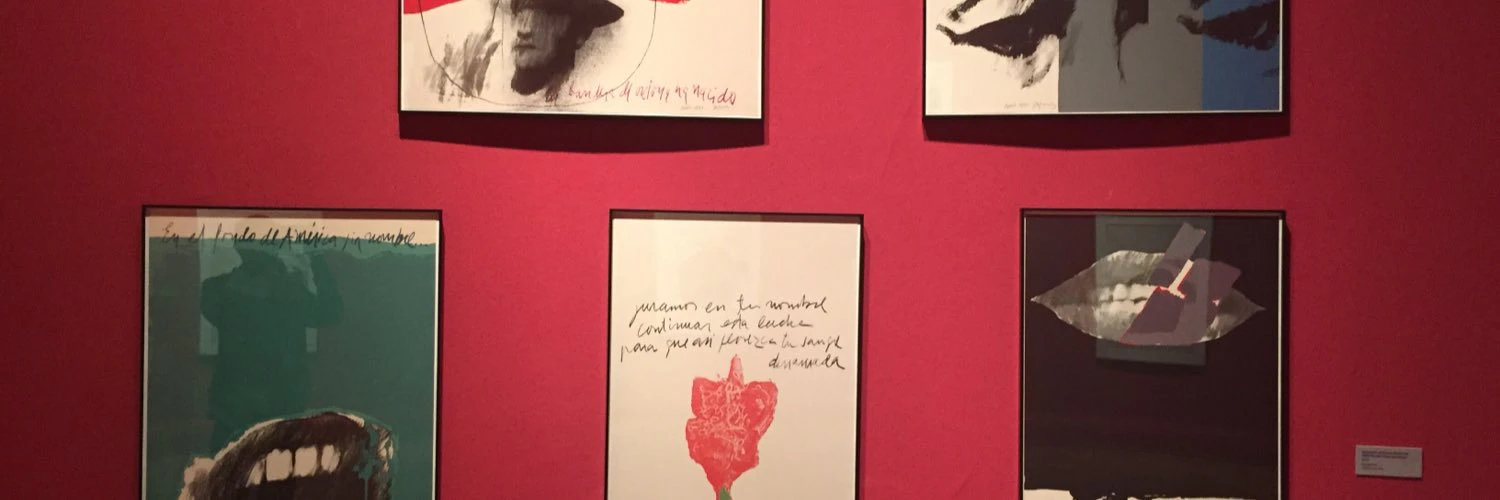 de octubre ha nacido
En el fondo de América sin nombre...
juramos en tu nombre
continuar esta lucha
para que así florezca tu sangre
derramada